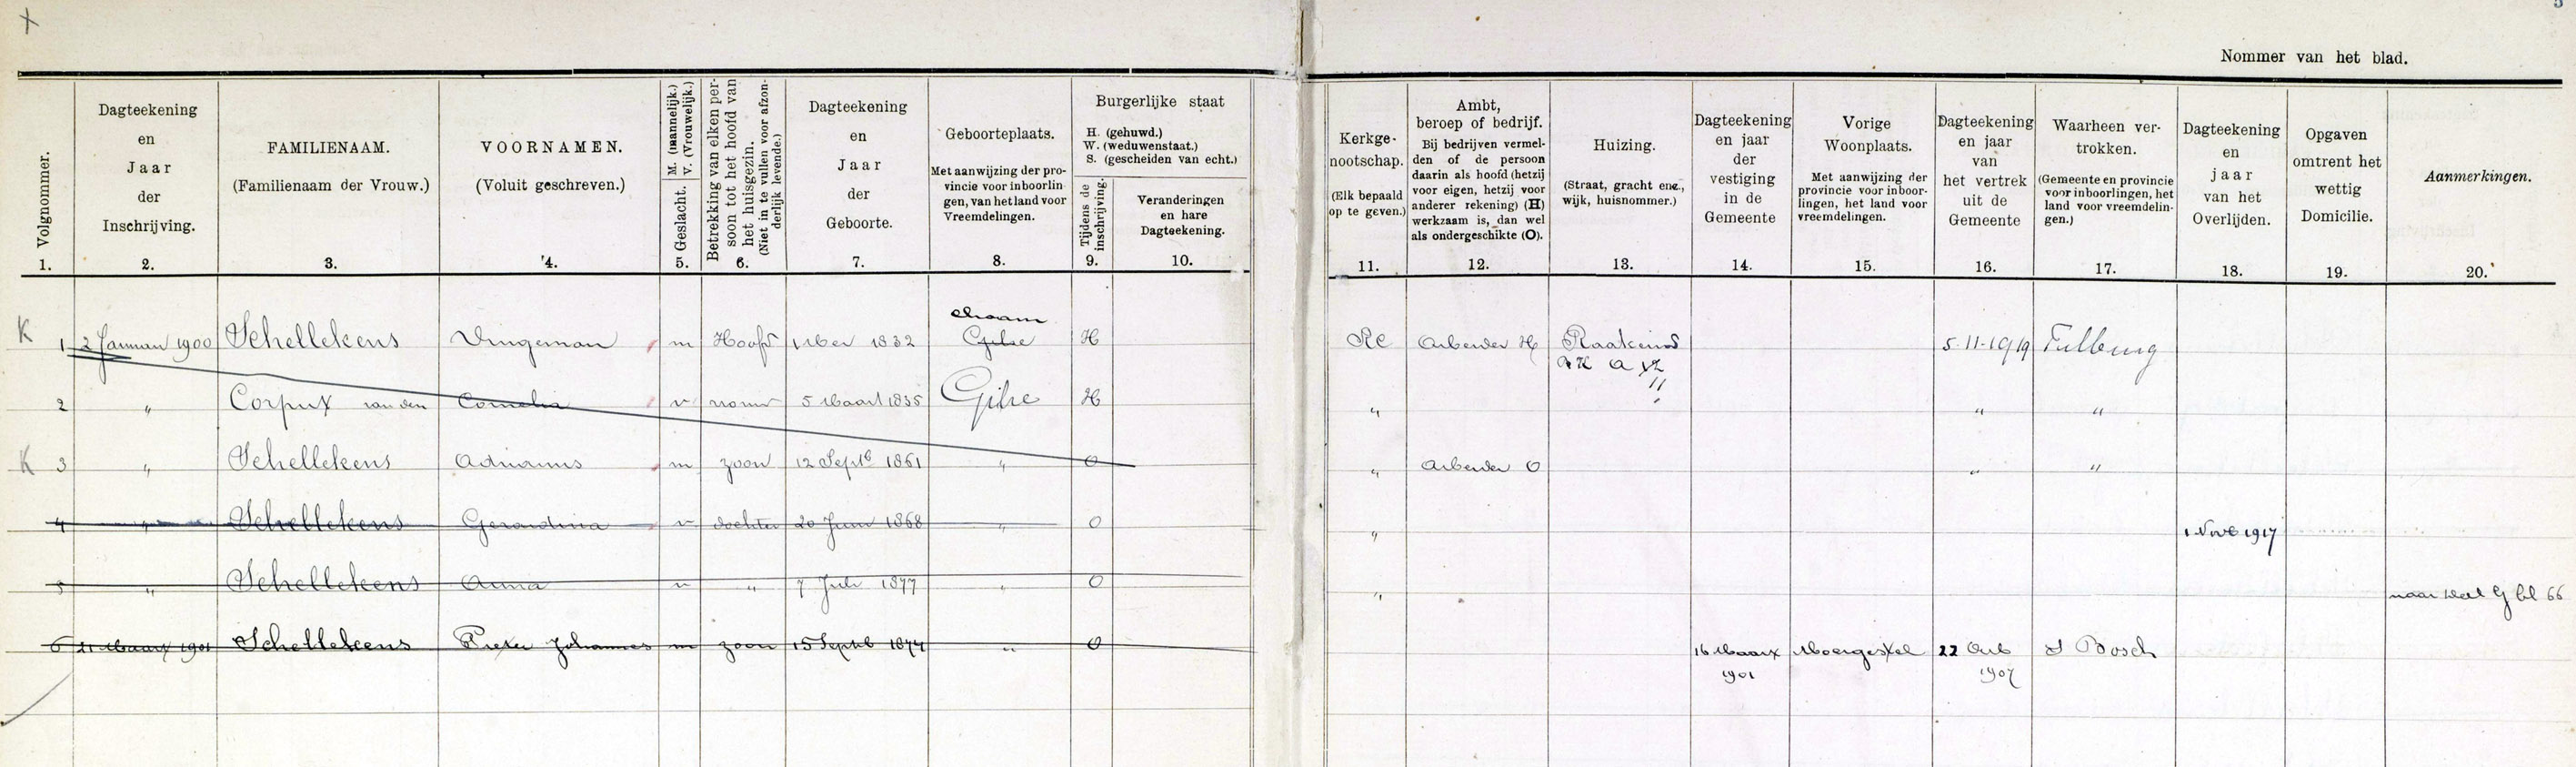 Nommer van het blad.
Volgnommer.
1.
Dagteekening
en
Jaar
der
Inschrijving.
2.
FAMILIENAAM.
(Familienaam der Vrouw.)
3.
VOORNAMEN.
(Voluit geschreven.)
4.
M. (mannelijk.)
V. (Vrouwelijk.)
Geslacht.
5.
Betrekking van elken per-
soon tot het hoofd van
het huisgezin.
(Niet in te vullen voor afzon-
derlijk levende.)
6.
Dagteekening
en
Jaar
der
Geboorte.
7.
Geboorteplaats.
Met aanwijzing der pro-
vincie voor inboorlin
gen, van het land voor
Vreemdelingen.
8.
Burgerlijke staat
H. (gehuwd.)
W. (weduwenstaat.)
S. (gescheiden van echt.)
Tijdens de
inschrijving.
9.
Veranderingen
en hare
Dagteekening.
10.
Kerkge-
nootschap.
(Elk bepaald
op te geven.)
11.
Ambt,
beroep of bedrijf.
Bij bedrijven vermel-
den of de persoon
daarin als hoofd (hetzij
voor eigen, hetzij voor
anderer rekening) (H)
werkzaam is, dan wel
als ondergeschikte (O).
12.
Huizing.
(Straat, gracht enz.,
wijk, huisnommer.)
13.
Dagteekening
en jaar
der
vestiging
in de
Gemeente
14.
Vorige
Woonplaats.
Met aanwijzing der
provincie voor inboor-
lingen, het land voor
vreemdelingen.
15.
Dagteekening
en jaar
van
het vertrek
uit de
Gemeente
16.
Waarheen ver-
trokken.
(Gemeente en provincie
voor inboorlingen, het
land voor vreemdelin-
gen.)
17.
Dagteekening
en
jaar
van het
Overlijden.
18.
Opgaven
omtrent het
wettig
Domicilie.
19.
Aanmerkingen.
20.
chaam
K 1 2 Januari 1900 Schellekens m Hoofd 1832 Gilse H RC Arbeider H 5-11-1919 Tilburg
2 " Corput van den Cornelia v vrouw 5 Maart 1835 Gilse H " " "
K 3 " Schellekens Adrianus m zoon 12 Septb 1861 " O " Arbeider O " "
4 " Schellekens Gerardina v dochter 20 Juni 1868 " O " 1 Nov 1917
5 " Schellekens Anna v " 7 Juli 1877 " O " naar bl 66
6 11 Maart 1901 Schellekens Pieter Johannes m zoon 15 Septb 1874 " O 16 Maart Moergestel 22 s Bosch
1901 1907